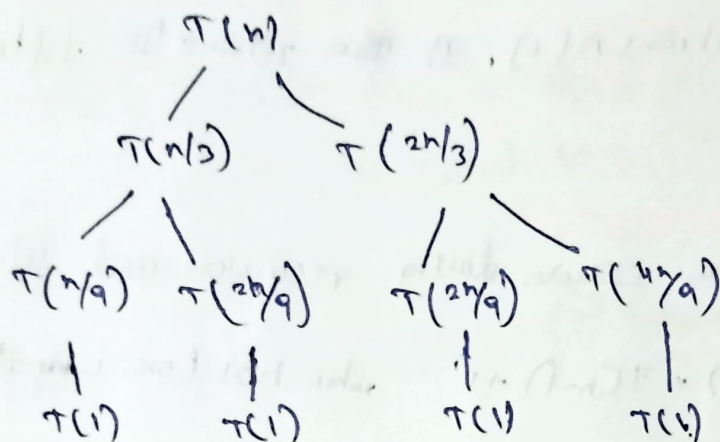 T(n)
T(n/3) T(2n/3)
T(n/9) T(2n/9) T(2n/9) T(4n/9)
T(1) T(1) T(1) T(1)